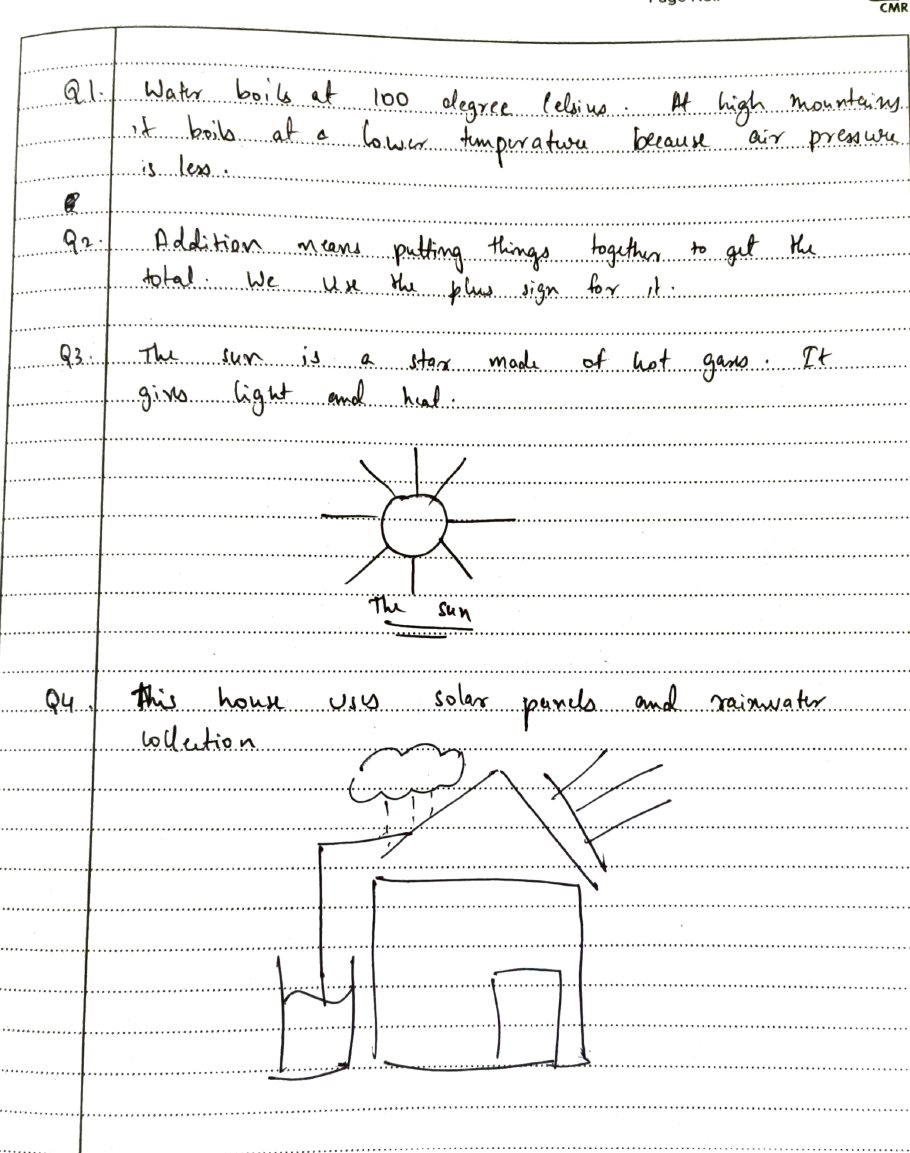 CMR
Q1. Water boils at 100 degree Celsius. At high mountains
it boils at a lower temperature because air pressure
is less.
Q2. Addition means putting things together to get the
total. We use the plus sign for it.
Q3. The sun is a star made of hot gases. It
gives light and heat.
The sun
Q4. This house uses solar panels and rainwater
collection